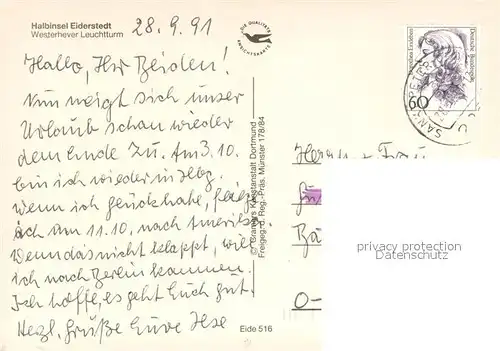 Halbinsel Eiderstedt
Westerhever Leuchtturm
28.9.91
DIE QUALITÄTS
ANSICHTSKARTE
Hallo, Ihr Beiden!
Nun neigt sich unser
Urlaub schon wieder
dem Ende zu. Am 3.10.
bin ich wieder in Hbg.
wenn ich Glück habe, fliege
ich am 11.10. nach Amerika.
Wenn das nicht klappt, will
ich nach Berlin kommen.
Ich hoffe, es geht Euch gut.
Herzl. Grüße Eure Ilse
Kunstanstalt Dortmund
Freigeg. d. Reg.-Präs. Münster 178/84
Eide 516
Deutsche Bundespost
60
SANKT PETER
Herrn + Frau
O-
privacy protection
Datenschutz